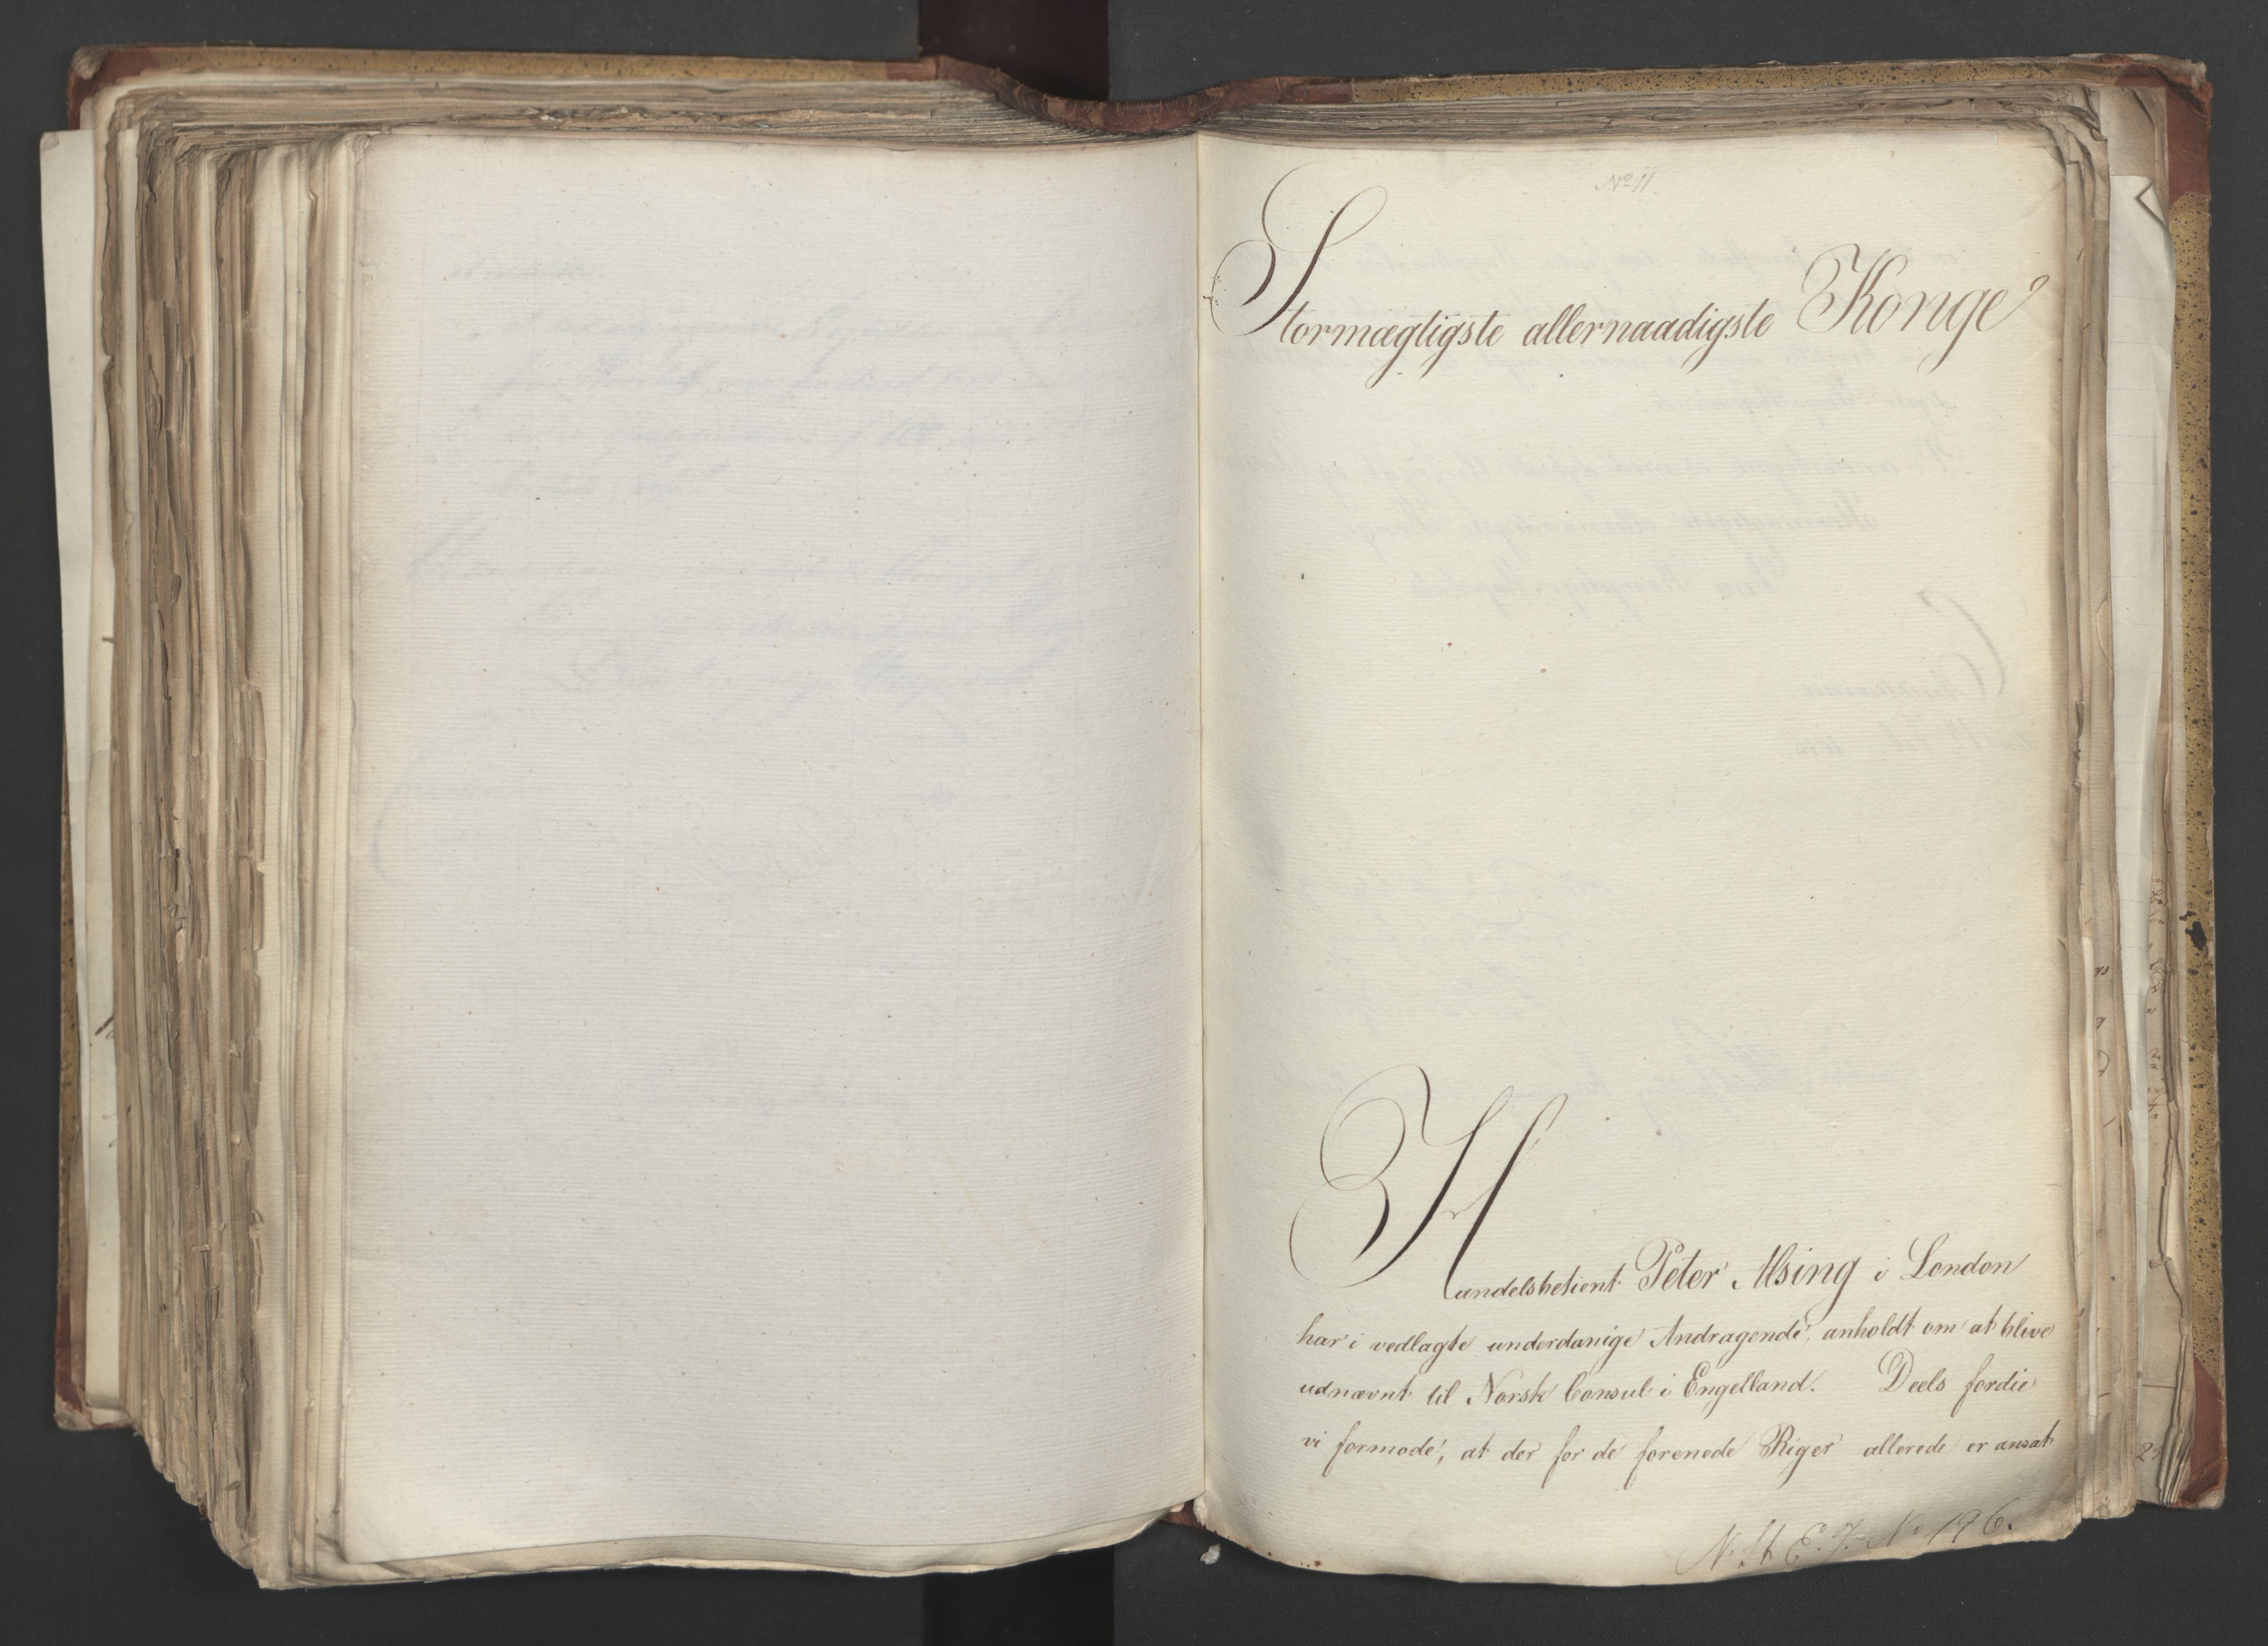 No 11.
Stormægtigste allernaadigste Konge
Handelsbetient Peter Alsing i London
har i vedlagte underdanige Andragende, anholdt om at blive
udnævnt til Norsk Consul i Engelland. Deels fordie
vi formode, at der for de forenede Riger allerede er ansat
N. St. E. J. No 196.